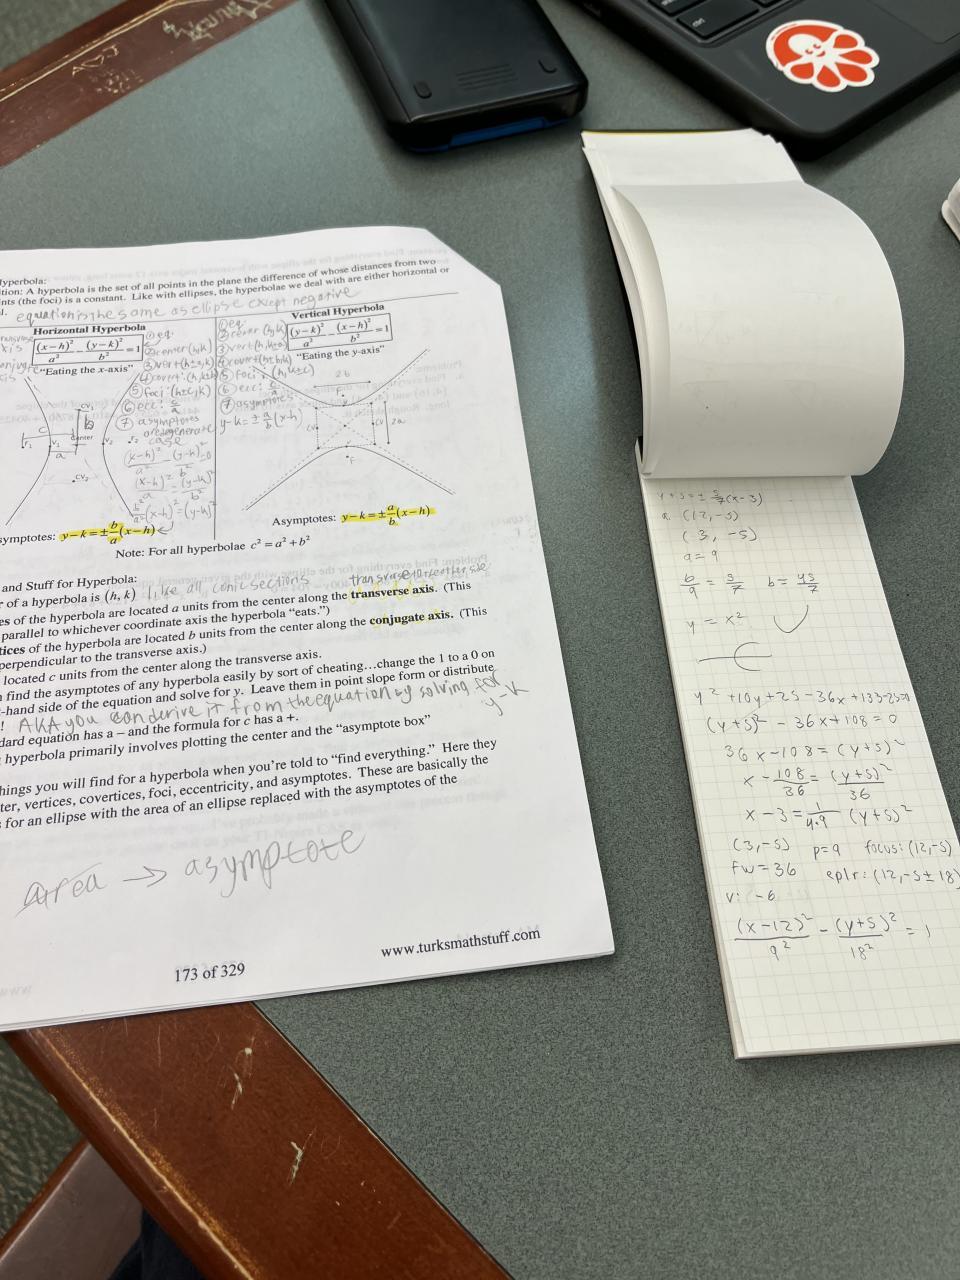 Hyperbola:
tion: A hyperbola is the set of all points in the plane the difference of whose distances from two
nts (the foci) is a constant. Like with ellipses, the hyperbolae we deal with are either horizontal or
l. equation is the same as ellipse except negative
Horizontal Hyperbola
(x-h)²/a² - (y-k)²/b² = 1
"Eating the x-axis"
① eq:
② center (h,k)
③ vert (h±a,k)
④ covert: (h,k±b)
⑤ foci: (h±c,k)
⑥ ecc: c/a
⑦ asymptotes
are degenerate
case
(x-h)²/a² - (y-k)²/b² = 0
Vertical Hyperbola
(y-k)²/a² - (x-h)²/b² = 1
"Eating the y-axis"
① eq
② center (h,k)
③ vert (h,k±a)
④ covert (h±b,k)
⑤ foci: (h,k±c)
⑥ ecc: c/a
⑦ asymptotes:
y-k=± a/b (x-h)
2b
2a
CV₁
center
V₁
V₂
F₁
F₂
a
b
c
CV₂
symptotes: y-k=± b/a (x-h)
Asymptotes: y-k=± a/b (x-h)
Note: For all hyperbolae c² = a² + b²
and Stuff for Hyperbola:
r of a hyperbola is (h, k) like all conic sections
es of the hyperbola are located a units from the center along the transverse axis. (This
parallel to whichever coordinate axis the hyperbola "eats.")
tices of the hyperbola are located b units from the center along the conjugate axis. (This
perpendicular to the transverse axis.)
located c units from the center along the transverse axis.
find the asymptotes of any hyperbola easily by sort of cheating…change the 1 to a 0 on
-hand side of the equation and solve for y. Leave them in point slope form or distribute
! AKA you can derive it from the equation by solving for
y-k
dard equation has a – and the formula for c has a +.
hyperbola primarily involves plotting the center and the "asymptote box"
hings you will find for a hyperbola when you're told to "find everything." Here they
ter, vertices, covertices, foci, eccentricity, and asymptotes. These are basically the
s for an ellipse with the area of an ellipse replaced with the asymptotes of the
area → asymptote
173 of 329
www.turksmathstuff.com
ctrl
y+5=± 5/7 (x-3)
a. (12,-5)
(3,-5)
a=9
b/9 = 5/7 b= 45/7
y = x²
y² +10y+25-36x+133-25=0
(y+5)² - 36x+108 = 0
36x-108 = (y+5)²
x - 108/36 = (y+5)²/36
x-3 = 1/4·9 (y+5)²
(3,-5) p=9 focus: (12,-5)
fw=36 eplr: (12,-5±18)
v: -6
(x-12)²/9² - (y+5)²/18² = 1